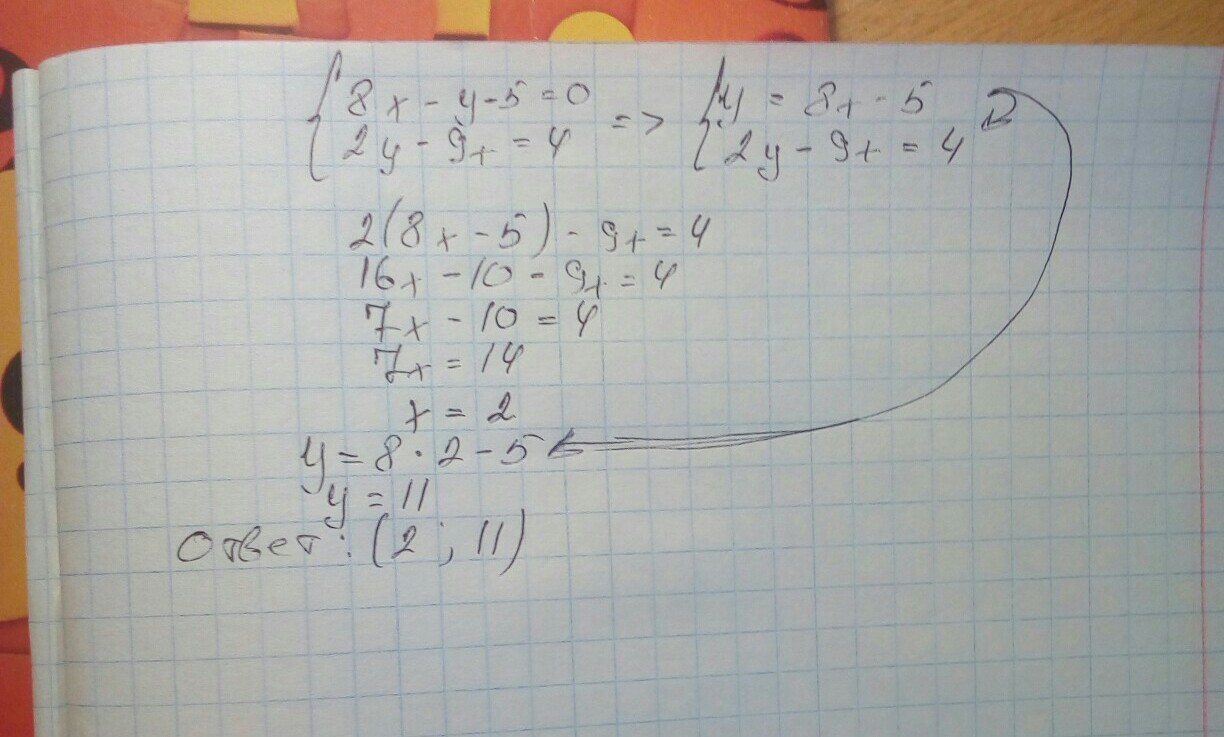 {8x - y - 5 = 0 => {y = 8x - 5
2y - 9x = 4 2y - 9x = 4
2(8x - 5) - 9x = 4
16x - 10 - 9x = 4
7x - 10 = 4
7x = 14
x = 2
y = 8 · 2 - 5
y = 11
Ответ: (2; 11)